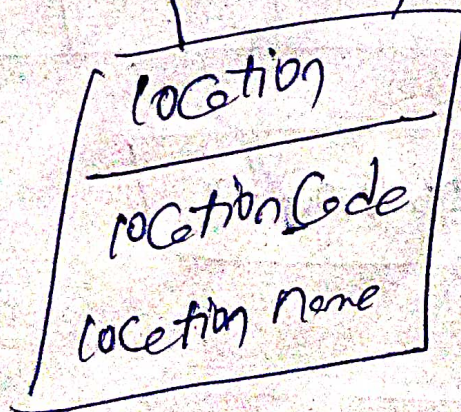 location
locationCode
location name